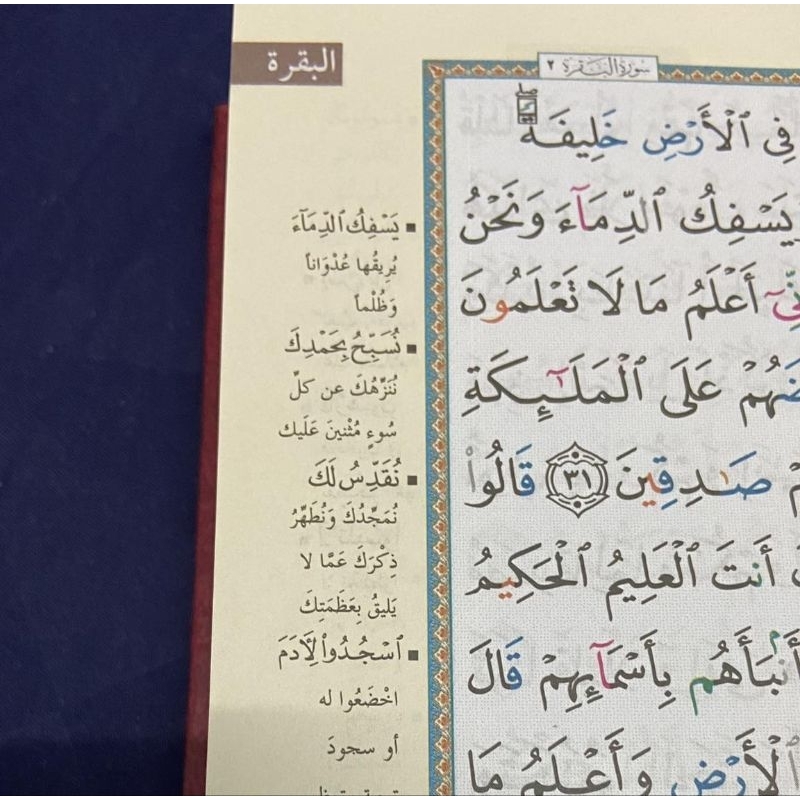 البقرة
سورة البقرة ٢
فِى ٱلْأَرْضِ خَلِيفَةً ۖ
يَسْفِكُ ٱلدِّمَآءَ وَنَحْنُ
أَعْلَمُ مَا لَا تَعْلَمُونَ
عَلَى ٱلْمَلَٰٓئِكَةِ
صَٰدِقِينَ ٣١ قَالُوا۟
أَنتَ ٱلْعَلِيمُ ٱلْحَكِيمُ
أَنۢبَأَهُم بِأَسْمَآئِهِمْ قَالَ
ٱلْأَرْضِ وَأَعْلَمُ مَا
■ يَسْفِكُ ٱلدِّمَآءَ
يُرِيقُها عُدْوَاناً
وَظُلْماً
■ نُسَبِّحُ بِحَمْدِكَ
نُنَزِّهُكَ عن كلِّ
سُوءٍ مُثْنينَ عَلَيك
■ نُقَدِّسُ لَكَ
نُمَجِّدُكَ وَنُطَهِّرُ
ذِكْرَكَ عَمَّا لا
يَليقُ بِعَظَمَتِكَ
■ ٱسْجُدُوا۟ لِأَدَمَ
اخْضَعُوا له
أو سجودَ